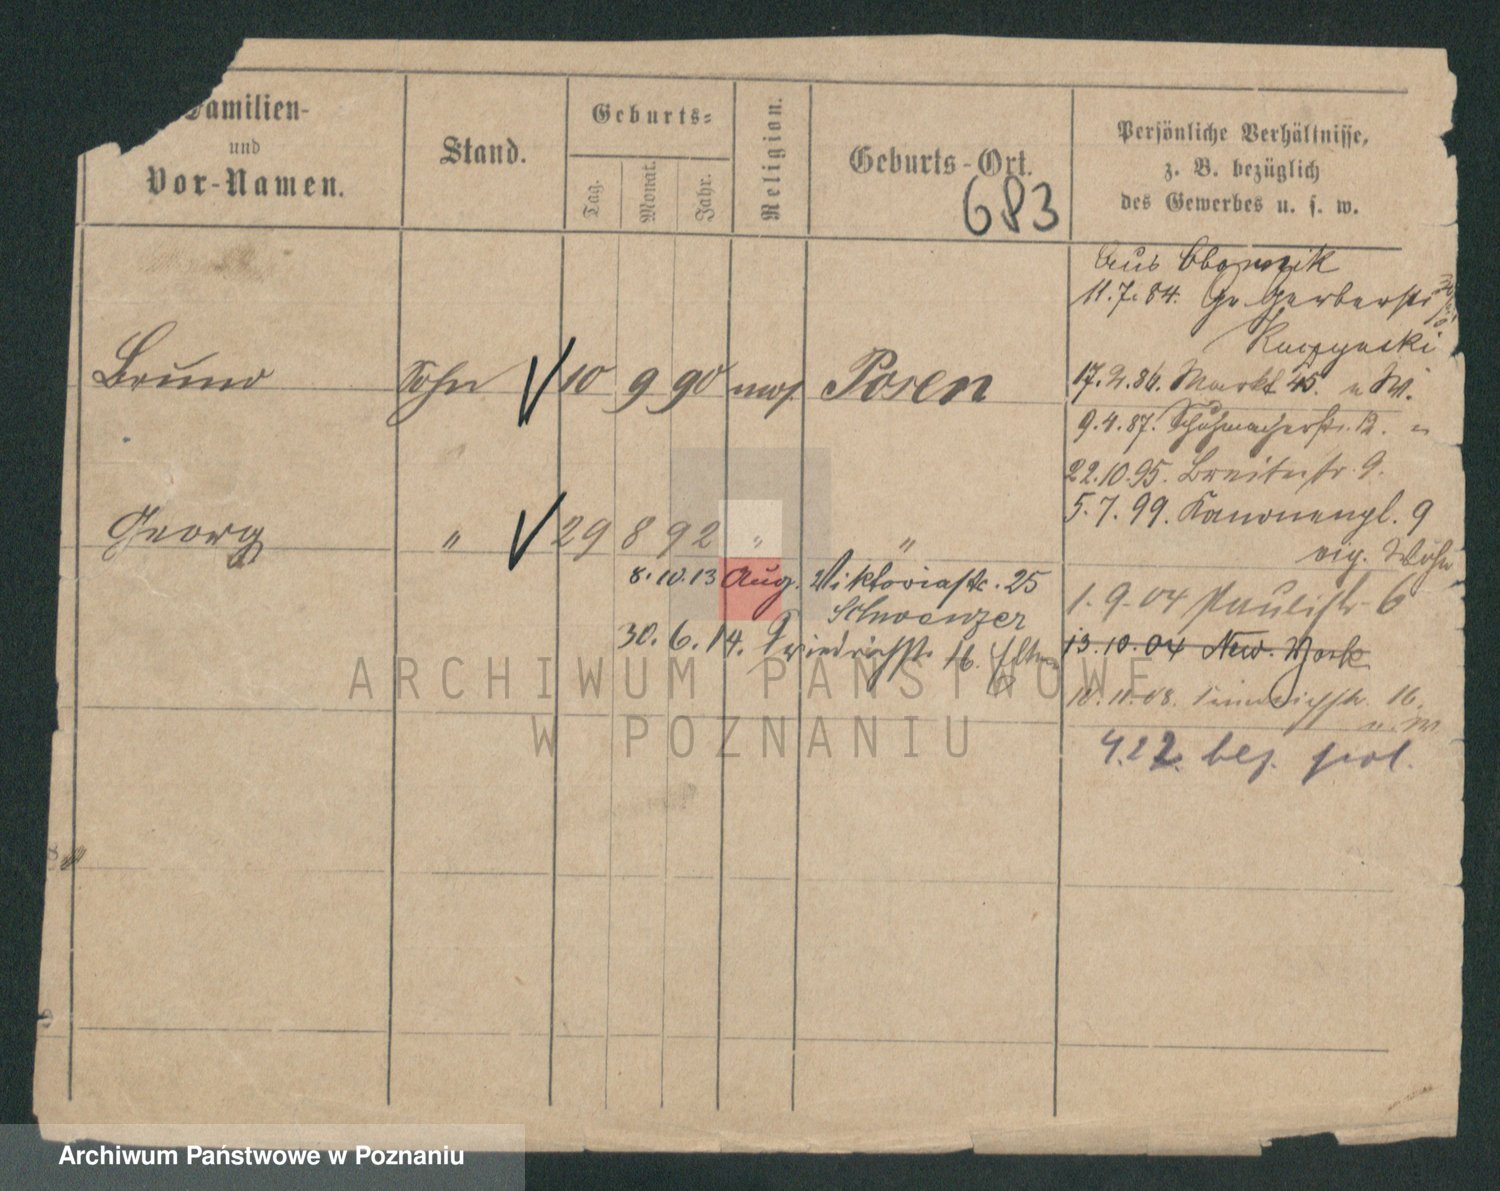 Familien-
und
Vor-Namen.
Stand.
Geburts-
Tag.
Monat.
Jahr.
Religion.
Geburts-Ort.
683
Persönliche Verhältnisse,
z. B. bezüglich
des Gewerbes u. s. w.
Aus Obornik
11.7.84. Gr Gerberstr
Bruno Sohn 10 9 90 mos Posen
17.2.86. Markt 45. u W.
9.4.87. Schuhmacherstr. 12.
22.10.95. Breitestr. 9.
5.7.99. Kanonenpl. 9
Georg " 29 8 92 " "
8.10.13 Aug. Viktoriastr. 25
Schwenzer
1.9.04 Paulistr 6
30.6.14. Friedrichstr. 16. Eltern
13.10.04 New. York
10.11.08. Friedrichstr. 16.
u. W
4.22. bes. pol.
ARCHIWUM PAŃSTWOWE
W POZNANIU
Archiwum Państwowe w Poznaniu